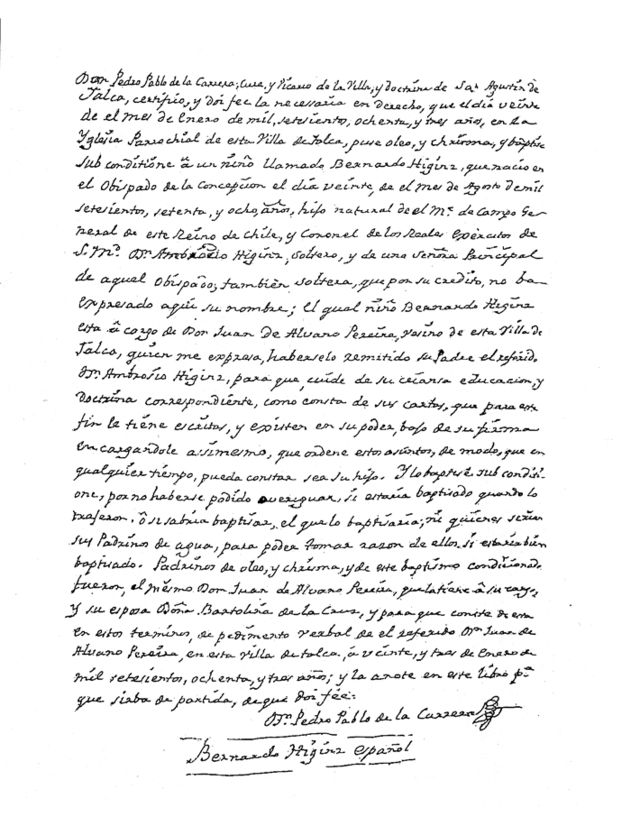 Don Pedro Pablo de la Carrera; Cura, y Vicario de la Villa, y doctrina de Sn. Agustin de
Talca, certifico, y doi fee la necessaria en derecho, que el dia veinte
de el mes de Enero de mil, setesientos, ochenta, y tres años, en la
Yglesia Parrochial de esta Villa de talca, puse oleo, y chrisma, y baptise
sub conditione â un niño llamado Bernardo Higinz, que nacio en
el Obispado de la Concepcion el dia veinte, de el mes de Agosto de mil
setesientos, setenta, y ocho, años, hijo natural de el Me. de Campo Ge-
neral de este Reino de Chile, y Coronel de los Reales Exercitos de
S. Md. Dn. Ambrosio Higinz, soltero, y de una Señora Principal
de aquel Obispado; tambien soltera, que por su credito, no ba
expresado aqui su nombre; El qual niño Bernardo Higinz
esta â cargo de Don Juan de Alvano Pereira, vesino de esta Villa de
Talca, quien me expresa, haberselo remitido su Padre el referido
Dn. Ambrosio Higinz, para que, cuide de su criansa educacion, y
doctrina correspondiente, como consta de sus cartas, que para este
fin le tiene escritas, y existen en su poder, bajo de su firma
encargandole assimesmo, que ordene estos asuntos, de modo, que en
qualquier tiempo, pueda constar sea su hijo. Y lo baptisé sub conditi-
one, por no haberse podido averiguar, si estaria baptisado quando lo
trajeron. ô si sabria baptisar, el que lo baptisaria; ni quienes serian
sus Padrinos de agua, para poder tomar razon de ellos, si estaria bien
baptisado. Padrinos de oleo, y chrisma, y de este baptismo condicionado
fueron, el mesmo Don Juan de Alvano Pereira, que lo tiene â su cargo,
Y su esposa Doña Bartolina de la Cruz, y para que conste de esta
en estos terminos, de pedimento verbal de el referido Dn. Juan de
Alvano Pereira, en esta Villa de talca, â veinte, y tres de Enero de
mil setesientos, ochenta, y tres años; y la anote en este libro pa.
que sirba de partida, de que doi fee:
Dn. Pedro Pablo de la Carrera
Bernardo Higinz español